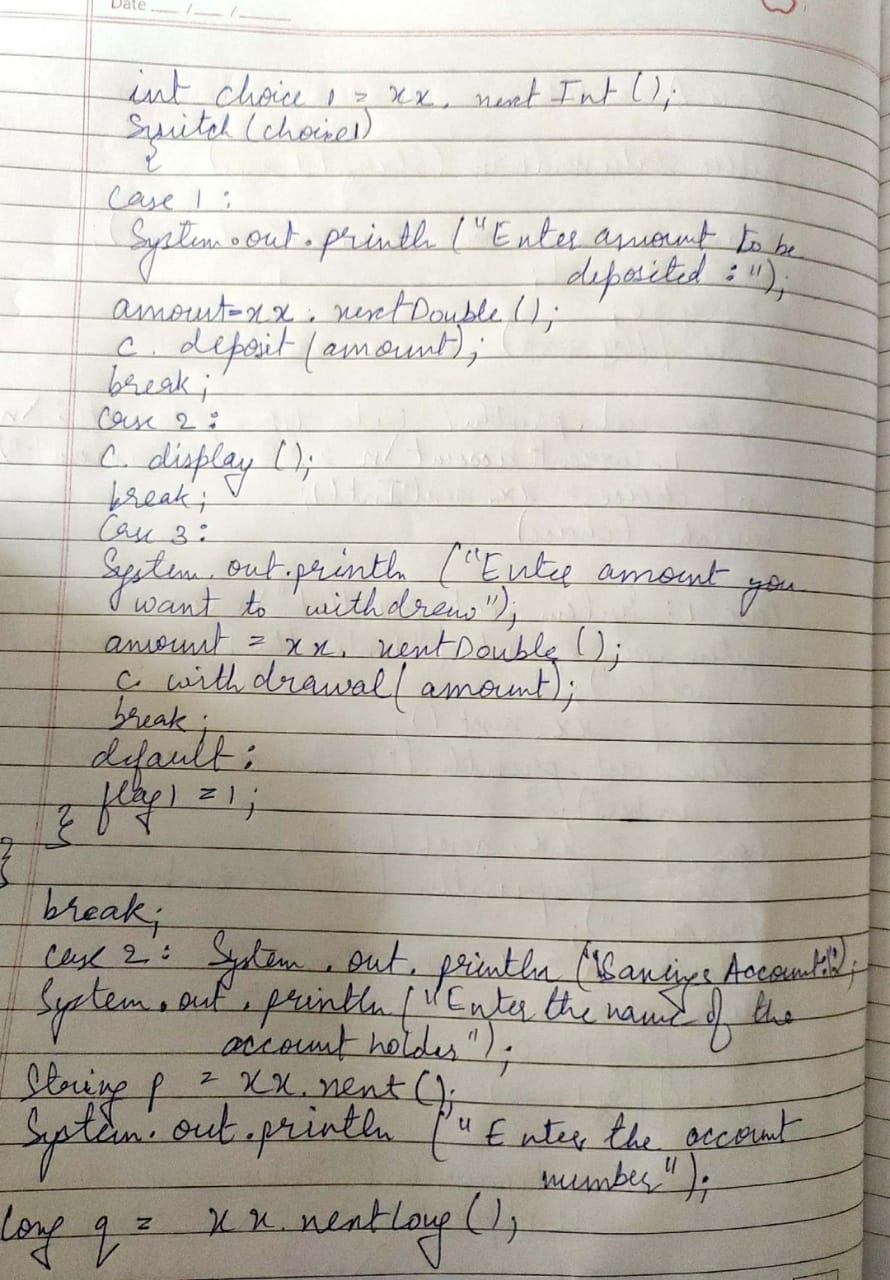 Date __/__/__
int choice 1 = xx. next Int ();
Switch (choice1)
{
Case 1 :
System.out.println ("Enter amount to be
deposited :");
amount=xx. nextDouble ();
c. deposit (amount);
break;
Case 2 :
C. display ();
break;
Case 3 :
System. out.println ("Enter amount you
want to withdrew");
amount = xx. nextDouble ();
c. withdrawal (amount);
break;
default :
flag1 = 1;
}
}
break;
case 2 : System . out. println ("Savings Account:");
System. out . println ("Enter the name of the
account holder");
String p = xx. next ();
System. out .println ("Enter the account
number");
long q = xx. nextlong ();